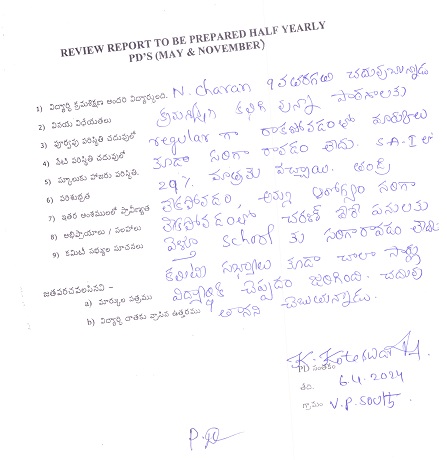 REVIEW REPORT TO BE PREPARED HALF YEARLY
PD'S (MAY & NOVEMBER)
1) విద్యార్థి క్రమశిక్షణ అందరి విద్యార్థులంది. N. Charan 9వ తరగతి చదువుచున్నాడు
2) వినయ విధేయతలు క్రమశిక్షణ కలిగి వున్నా పాఠశాలకు
3) పూర్వపు పరిస్థితి చదువులో regular గా రాకపోవడంతో మార్కులు
4) నేటి పరిస్థితి చదువులో కూడా సరిగా రావడం లేదు. S.A-I లో
5) స్కూలుకు హాజరు పరిస్థితి. 29% మాత్రమే వచ్చాయి. తండ్రి
6) పరిశుభ్రత లేకపోవడం, అమ్మ ఆరోగ్యం సరిగా
7) ఇతర అంశములలో ప్రావీణ్యత లేకపోవడంతో చరణ్ వేరే పనులకు
8) అభిప్రాయాలు / సలహాలు వెళ్తూ School కు సరిగా రావడం లేదు.
9) కమిటీ సభ్యుల సూచనలు కమిటీ సభ్యులు కూడా చాలా సార్లు
జతపరచవలసినవి –
a) మార్కుల పత్రము విద్యార్థికి చెప్పడం జరిగింది. చదువు
b) విద్యార్థి దాతకు వ్రాసిన ఉత్తరము తానని చెబుతున్నాడు.
PD సంతకం
తేది. 6.4.2024
గ్రామం V.P. South